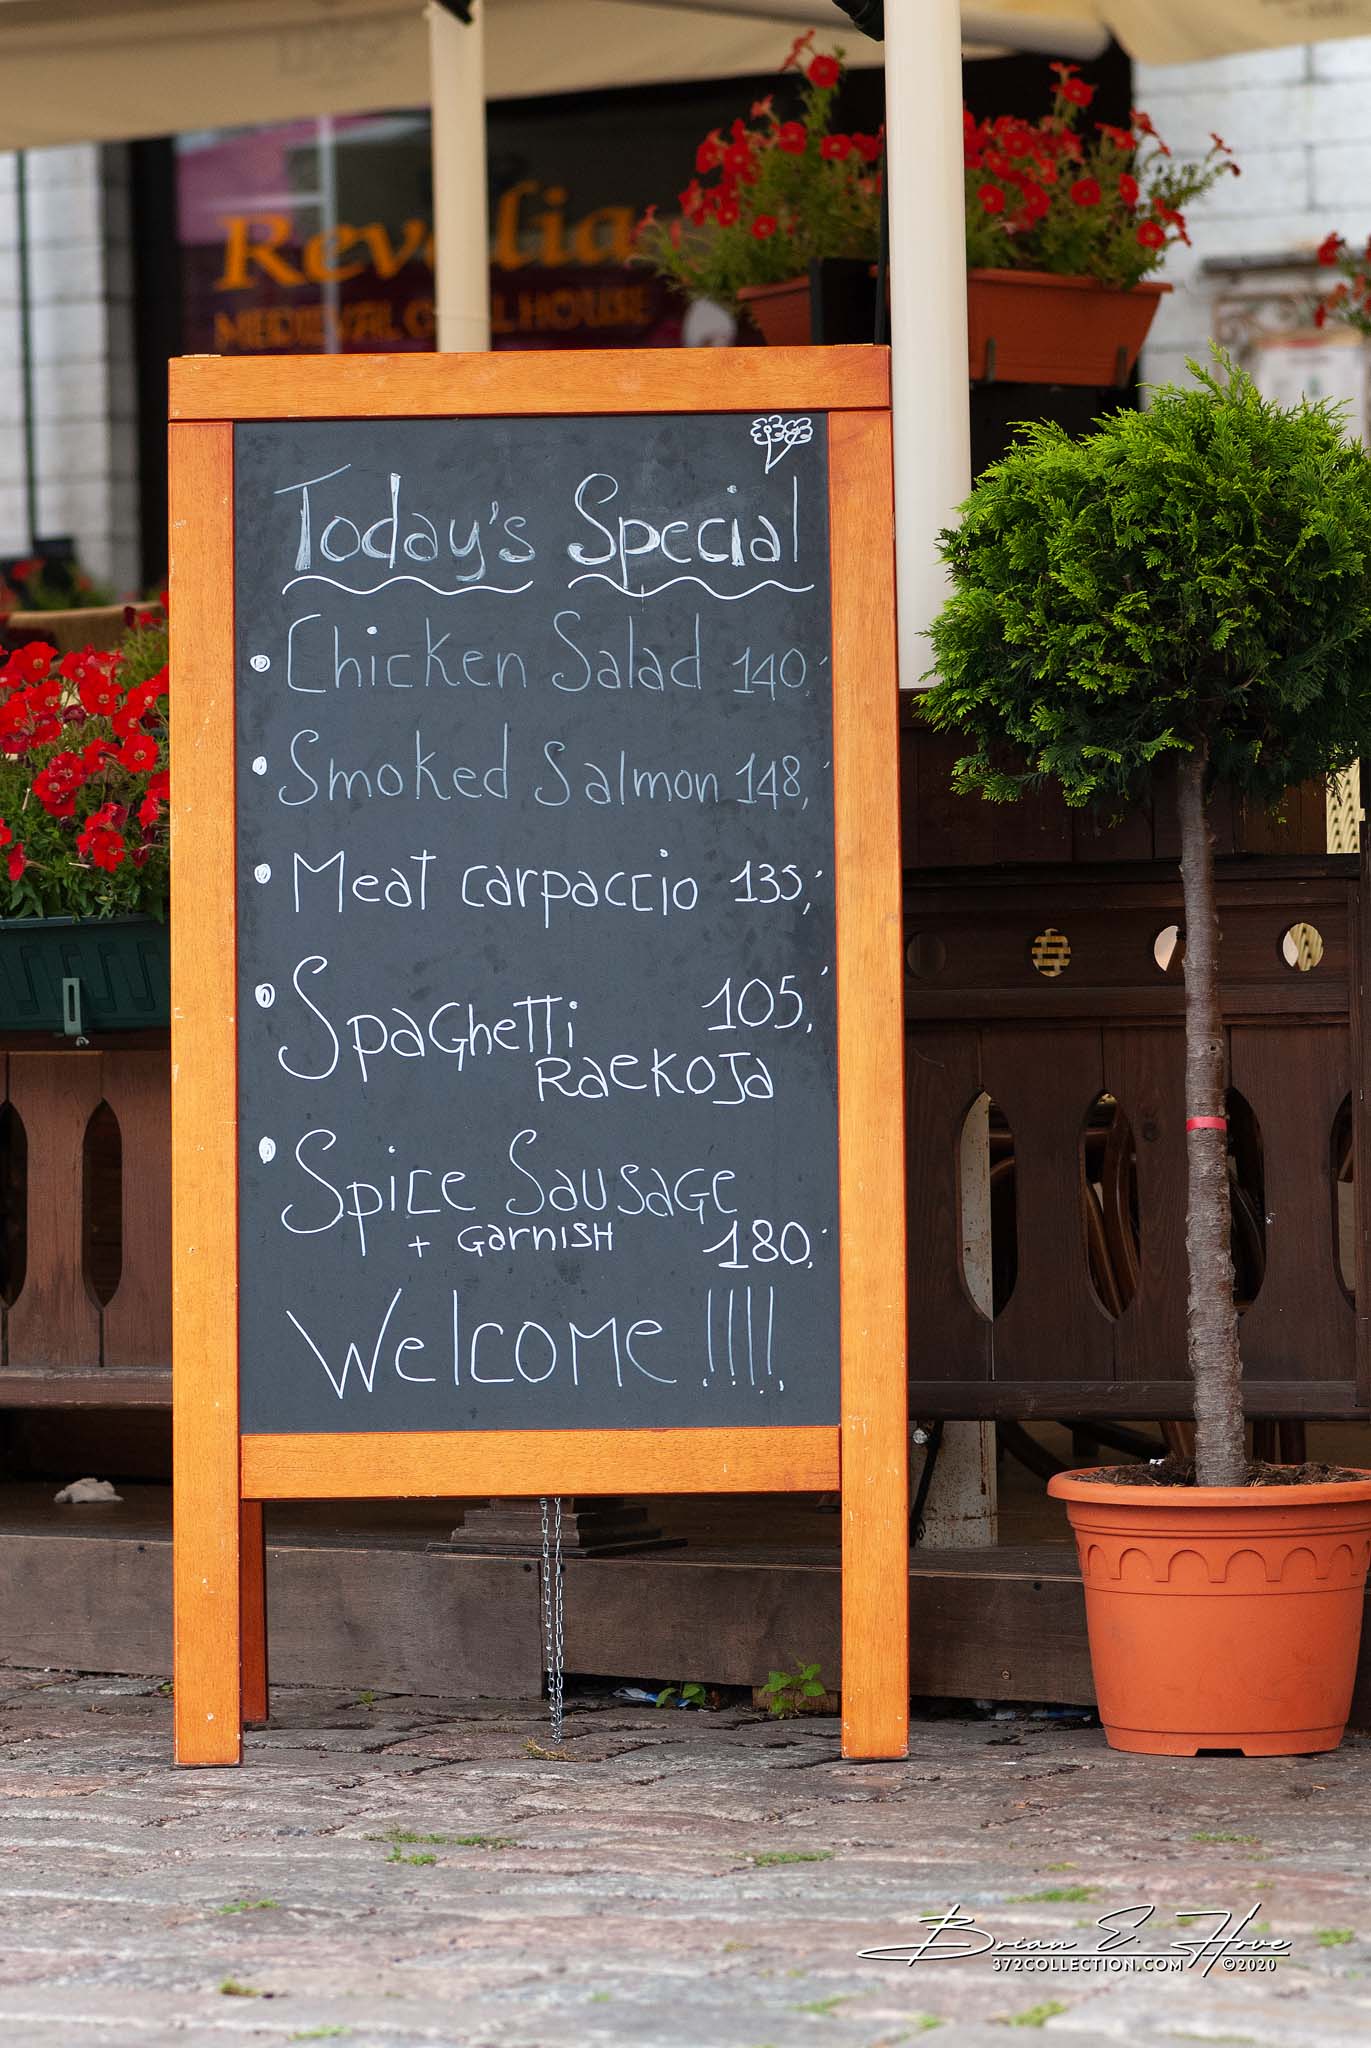 Revalia
MEDIEVAL GRILL HOUSE
Today's Special
Chicken Salad 140,-
Smoked Salmon 148,-
Meat carpaccio 135,-
Spaghetti 105,-
Raekoja
Spice Sausage
+ Garnish 180,-
Welcome !!!!
Brian E. Hove
372COLLECTION.COM ©2020